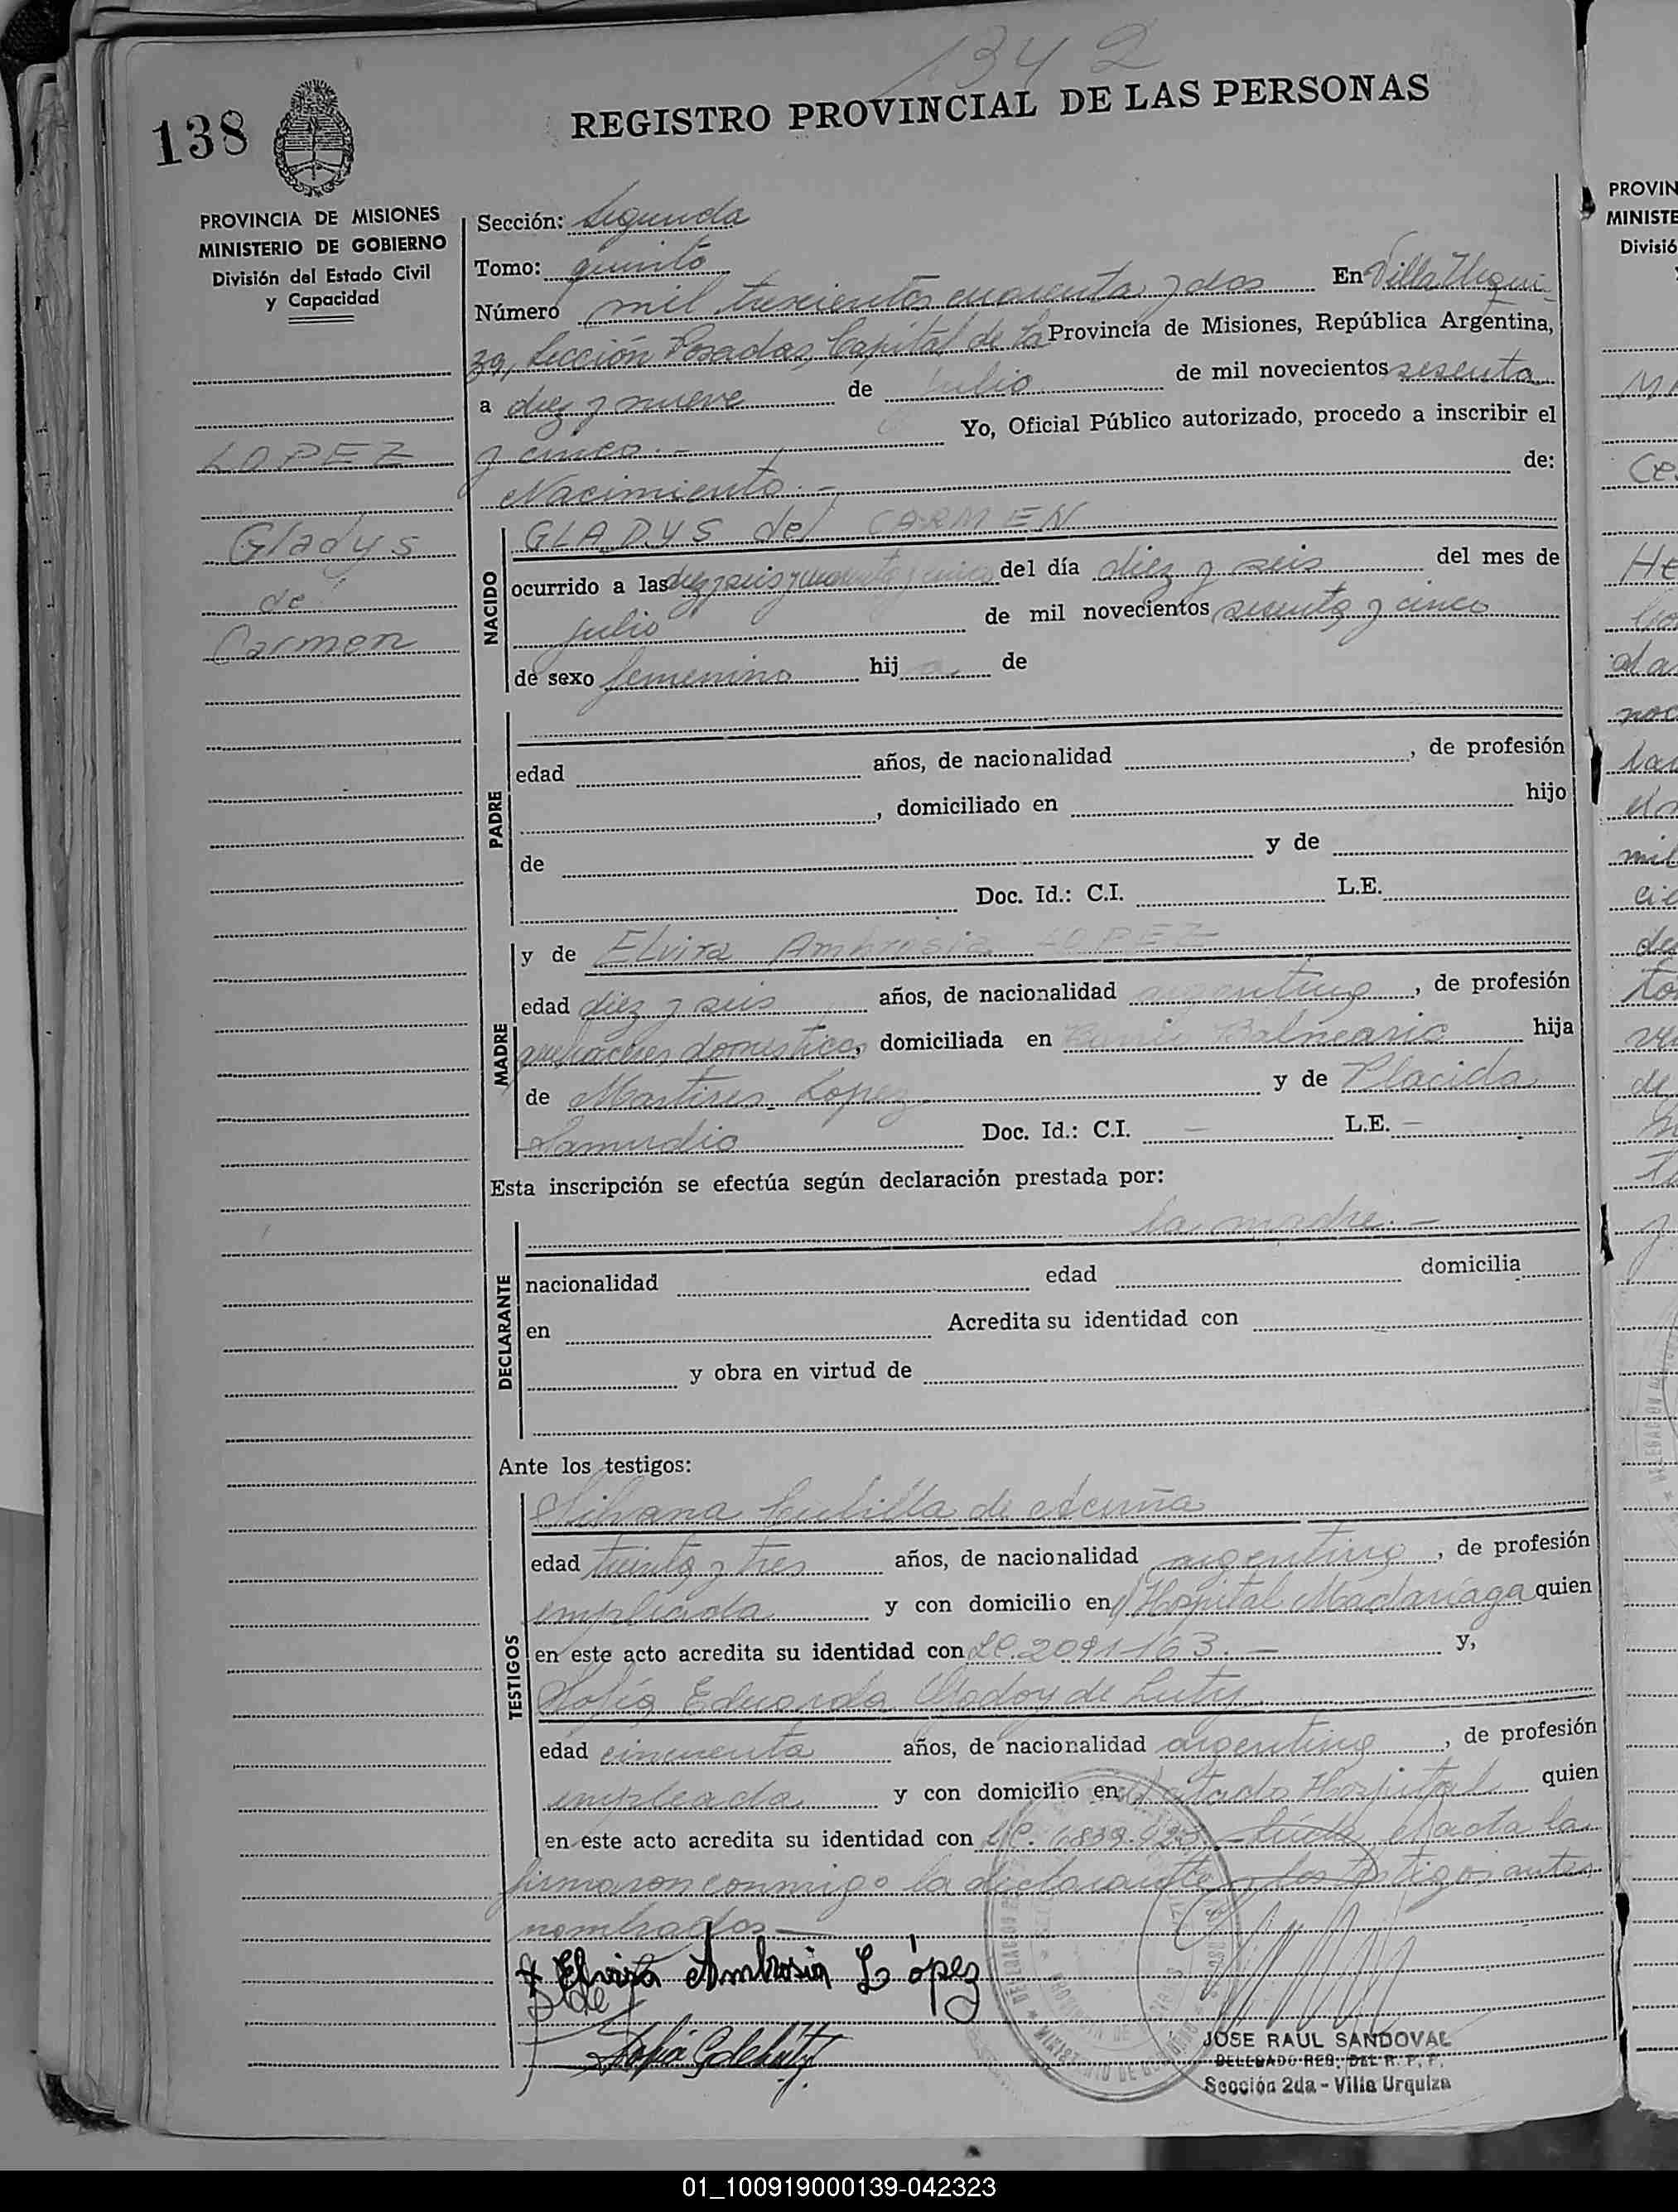 1342
138
REGISTRO PROVINCIAL DE LAS PERSONAS
PROVINCIA DE MISIONES
MINISTERIO DE GOBIERNO
División del Estado Civil
y Capacidad
LOPEZ
Gladys
del
Carmen
Sección: Segunda
Tomo: quinto
Número mil trescientos cuarenta y dos En Villa Urqui-
za, Sección Posadas, Capital de la Provincia de Misiones, República Argentina,
a diez y nueve de Julio de mil novecientos sesenta
y cinco.- Yo, Oficial Público autorizado, procedo a inscribir el
Nacimiento.- de:
NACIDO
GLADYS del CARMEN
ocurrido a las diez y seis y cuarenta y cinco del día diez y seis del mes de
julio de mil novecientos sesenta y cinco
de sexo femenino hij a de
PADRE
edad años, de nacionalidad , de profesión
, domiciliado en hijo
de y de
Doc. Id.: C.I. L.E.
MADRE
y de Elvira Ambrosia LOPEZ
edad diez y seis años, de nacionalidad argentina, de profesión
quehaceres domésticos, domiciliada en Barrio Balneario hija
de Martires Lopez y de Placida
Samudio Doc. Id.: C.I. — L.E. —
Esta inscripción se efectúa según declaración prestada por:
DECLARANTE
la madre.-
nacionalidad edad domicilia
en Acredita su identidad con
y obra en virtud de
Ante los testigos:
TESTIGOS
Silvana Cubilla de Acuña
edad treinta y tres años, de nacionalidad argentina, de profesión
empleada y con domicilio en Hospital Madariaga quien
en este acto acredita su identidad con LC. 2091163.- y,
Sofía Eduarda Godoy de Luty
edad cincuenta años, de nacionalidad argentina, de profesión
empleada y con domicilio en citado Hospital quien
en este acto acredita su identidad con LC. Leída el acta la
firmaron conmigo la declarante y los testigos antes
nombrados.—
Elvira Ambrosia López
Sofia G de Luty
JOSE RAUL SANDOVAL
DELEGADO REG. DEL R. P. P.
Sección 2da - Villa Urquiza
PROVIN
MINISTE
Divisió
01_100919000139-042323